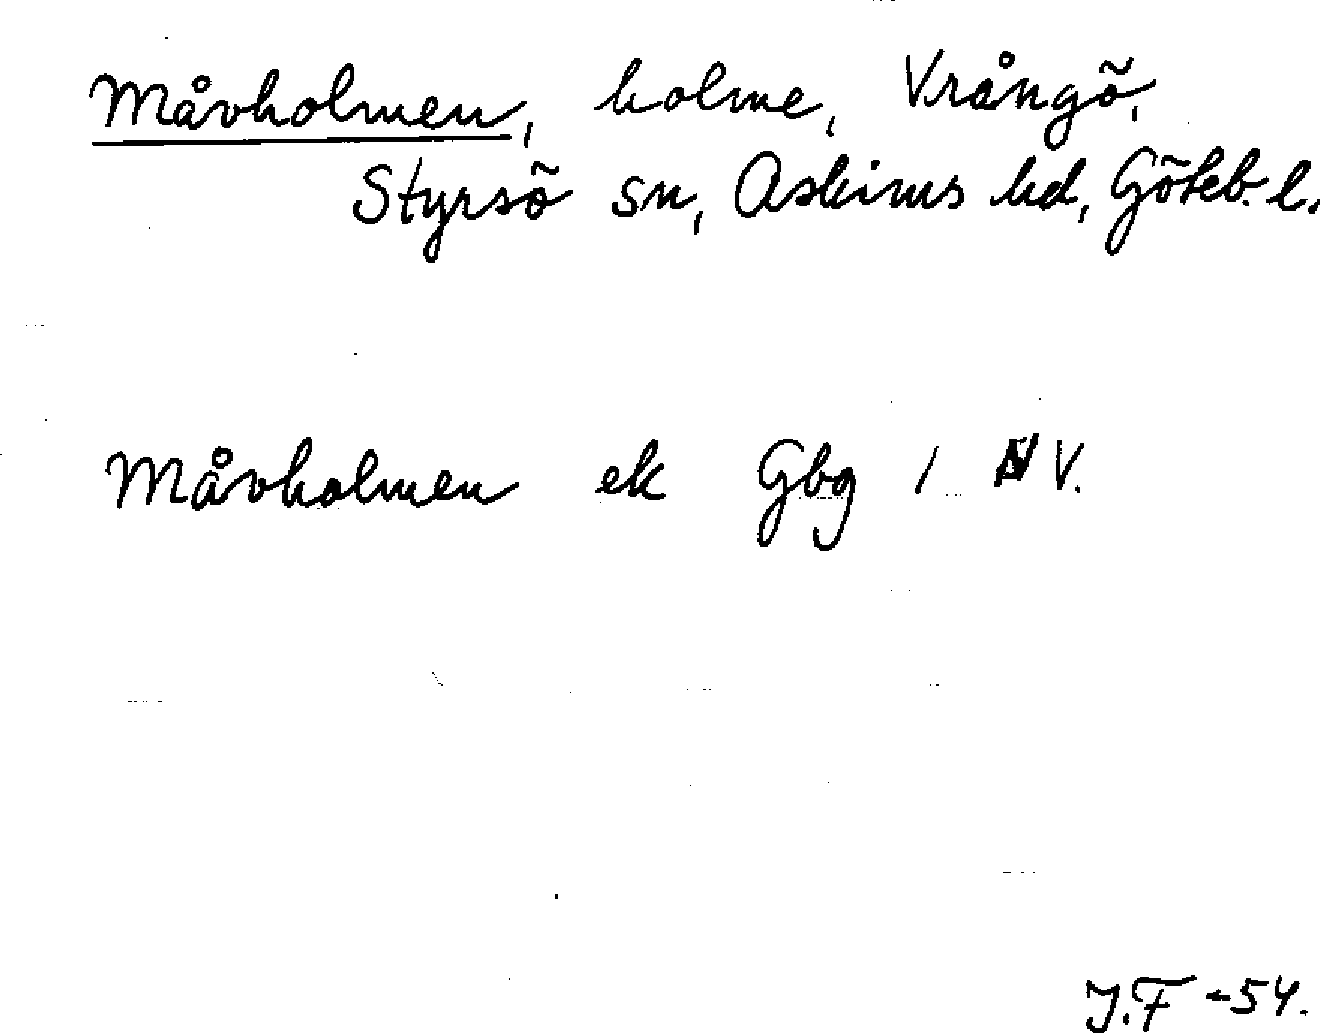 Måvholmen, holme, Vrångö,
Styrsö sn, Askims hd, Göteb. l.
Måvholmen ek Gbg 1 NV.
J.F -54.